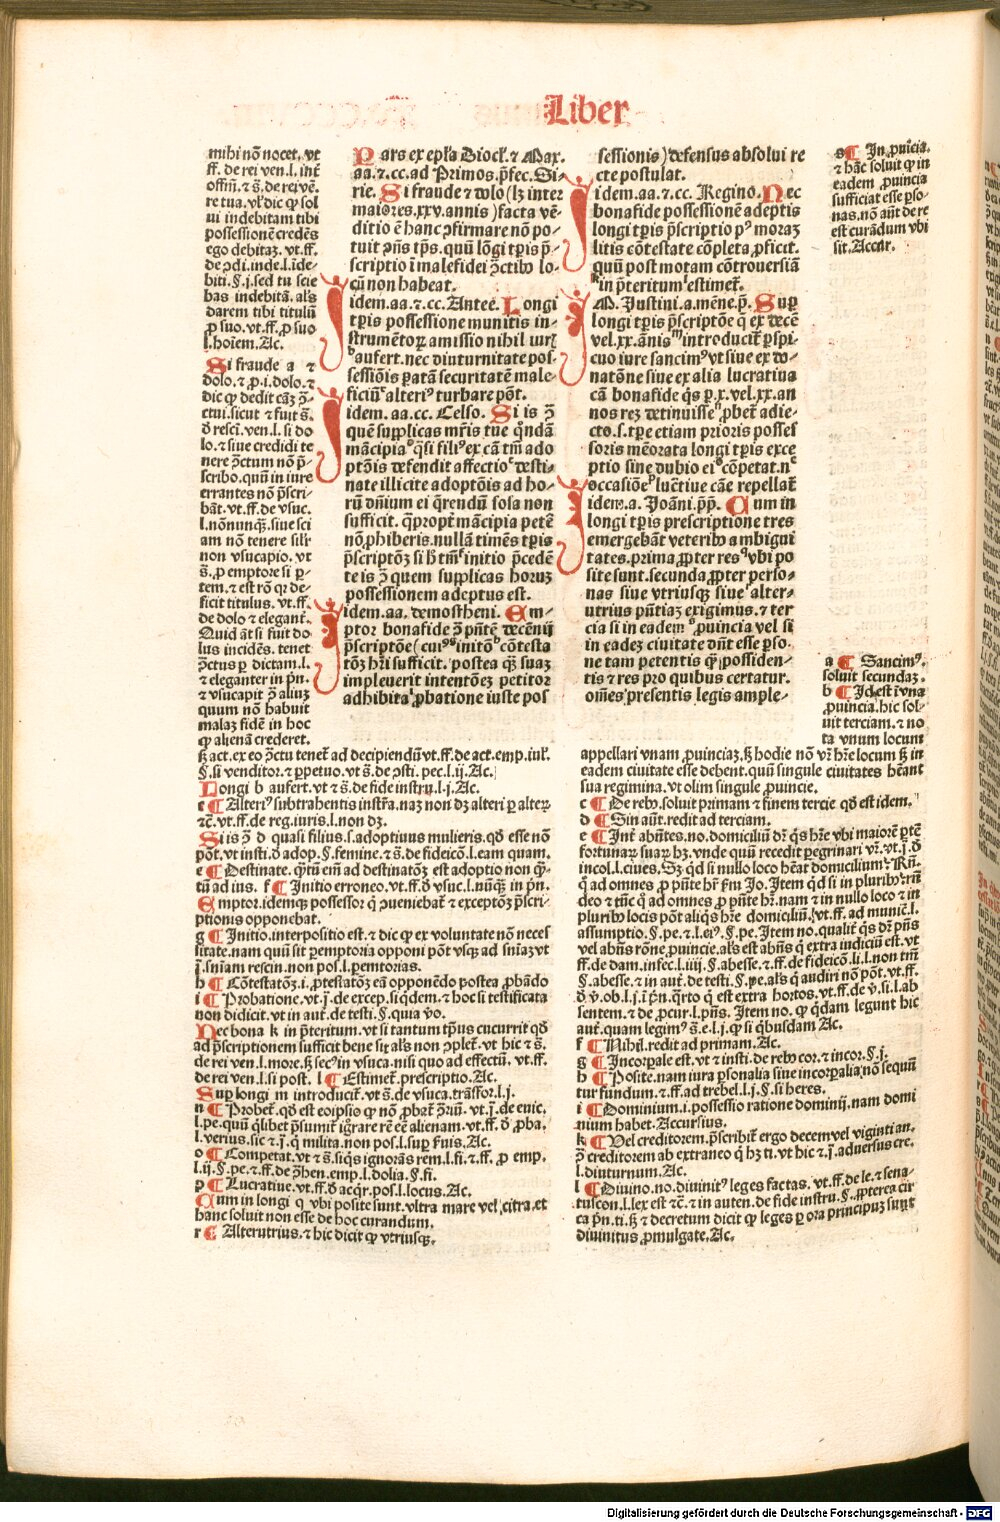 Liber
mihi nõ nocet. vt
ff. de rei ven. l. inť
offm̃. ⁊ s̃. de rei vẽ.
re tua. vľ dic ꝙ sol
ui indebitam tibi
possessionẽ credẽs
ego debitaz. vt. ff.
de ↄdi. inde. l. ĩde-
biti. §. j. sed tu scie
bas indebitã. als̃
darem tibi titulũ
ꝓ suo. vt. ff. ꝓ suo
l. hoĩem. Ac.
Si fraude a ⁊
dolo. ⁊ ꝓ. i. dolo. ⁊
dic ꝙ dedit cãz ↄ̃-
ctui. sicut ⁊ fuit s̃.
ð resci. ven. l. si do
lo. ⁊ siue credidi te
nere ↄ̃ctum nõ p̃-
scribo. quũ in iure
errantes nõ p̃scri-
bãt. vt. ff. de vsuc.
l. nõnunqꝫ. siue sci
am nõ tenere silr̃
non vsucapio. vt
s̃. ꝓ emptore si ꝑ-
tem. ⁊ est rõ qꝛ de-
ficit titulus. vt. ff.
de dolo ⁊ elegant̃.
Quid ãt si fuit do
lus incidẽs. tenet
ↄ̃ctus ꝑ dictam. l.
⁊ eleganter in pñ.
⁊ vsucapit ꝓ aliuz
quum nõ habuit
malaz fidẽ in hoc
ꝙ alienã crederet.
ſꝫ act. ex eo ↄ̃ctu tenet̃ ad decipiendũ vt. ff. de act. emp. iul̃.
§. si venditor. ⁊ ꝑpetuo. vt s̃. de ↄsti. pec. l. ij. Ac.
Longi b aufert. vt ⁊ s̃. de fide instru. l. j. Ac.
c ¶ Alteriꝰ subtrahentis instr̃a. naz non dz alteri ꝑ alteꝝ
⁊c̃. vt. ff. de reg. iuris. l. non dz.
Si is ↄ̃ d quasi filius. s. adoptiuus mulieris. qð esse nõ
põt. vt insti. ð adop. §. femine. ⁊ s̃. de fideicõ. l. eam quam.
e ¶ Destinate. q̃tũ em̃ ad destinatõz est adoptio non q̃-
tũ ad ius. f ¶ Initio erroneo. vt. ff. ð vsuc. l. nũqꝫ in pñ.
Emptor. idemqꝫ possessor q̃ ꝓueniebat̃ ⁊ exceptõz p̃scri-
ptionis opponebat.
g ¶ Initio. interpositio est. ⁊ dic ꝙ ex voluntate nõ neces
sitate. nam quũ sit ꝑemptoria opponi põt vsqꝫ ad sniaz vt
j. sniam rescin. non pos. l. ꝑemtorias.
h ¶ Cõtestatõz. i. ꝓtestatõz eã opponẽdo postea ꝓbãdo
i ¶ Probatione. vt. j. de excep. si qdem. ⁊ hoc si testificata
non didicit. vt in aut̃. de testi. §. quia ṽo.
Nec bona k in p̃teritum. vt si tantum tp̃us cucurrit qð
ad p̃scriptionem sufficit bene sit als̃ non ↄplet̃. vt hic ⁊ s̃.
de rei ven. l. more. ſꝫ secꝰ in vsuca. nisi quo ad effectũ. vt. ff.
de rei ven. l. si post. l ¶ Estimet̃. prescriptio. Ac.
Suꝑ longi m introducit̃. vt s̃. de vsuca. trãsfor. l. j.
n ¶ Probet̃. qð est eoipso ꝙ nõ ꝓbat̃ ↄ̃riũ. vt. j. de euic.
l. pe. quũ q̃libet p̃sumit̃ ig̃rare rẽ eẽ alienam. vt. ff. ð ꝓba.
l. verius. sic ⁊. j. q̃ milita. non pos. l. suꝑ f̃uis. Ac.
o ¶ Competat. vt ⁊ s̃. si qs ignorãs rem. l. fi. ⁊ ff. ꝓ emp.
l. ij. §. pe. ⁊ ff. de ↄ̃hen. emp. l. dolia. §. fi.
p ¶ Lucratiue. vt. ff. ð acqr̃. pos. l. locus. Ac.
Cum in longi q vbi posite sunt. vltra mare vel citra. et
hanc soluit non esse de hoc curandum.
r ¶ Alterutrius. ⁊ hic dicit ꝙ vtriusqꝫ.
Pars ex epľa Diocľ. ⁊ Max.
aa. ⁊. cc. ad Primos. p̃fec. Si-
rie. Si fraude ⁊ dolo (lz inter
maiores. xxv. annis) facta vẽ-
ditio ẽ hanc ↄfirmare nõ po-
tuit ↄñs tp̃s. quũ lõgi tꝑis p̃-
scriptio ĩ malefidei ↄ̃ctibꝰ lo-
cũ non habeat.
idem. aa. ⁊. cc. Antee. Longi
tꝑis possessione munitis in-
strumẽtoꝝ amissio nihil iuꝝ
aufert. nec diuturnitate pos-
sessiõis ꝑatã securitatẽ male-
ficiũ alteriꝰ turbare põt.
idem. aa. cc. Celso. Si is ↄ̃
quẽ supplicas mr̃is tue q̃ndã
mãcipia q̃si filiꝰ ex cã tm̃ ado
ptõis defendit affectio desti-
nate illicite adoptõis ad ho-
rũ dñium ei q̃rendũ sola non
sufficit. q̃ꝓpt̃ mãcipia petẽ
nõ ꝓhiberis. nullã timẽs tꝑis
p̃scriptõz si h̃ tm̃ initio p̃cedẽ
te is ↄ̃ quem supplicas horuz
possessionem adeptus est.
idem. aa. demostheni. Em-
ptor bonafide ↄ̃ pñtẽ decẽnij
p̃scriptõe (cuiꝰ initõ cõtesta
tõz hr̃i sufficit. postea qꝫ suaz
impleuerit intentõez petitor
adhibita ꝓbatione iuste pos
sessionis) defensus absolui re
cte postulat.
idem. aa. ⁊. cc. Regino. Nec
bonafide possessionẽ adeptis
longi tꝑis p̃scriptio pꝰ moraz
litis cõtestate cõpleta ꝓficit.
quũ post motam cõtrouersiã
in p̃teritum estimet̃.
M. Justini. a. mẽne. p̃. Suꝑ
longi tꝑis p̃scriptõe q̃ ex decẽ
vel. xx. ãnis introducit̃ ꝑspi-
cuo iure sancimꝰ vt siue ex do-
natõne siue ex alia lucratiua
cã bonafide q̃s ꝑ. x. vel. xx. an
nos rez detinuisse ꝓbet̃ adie-
cto. s. tꝑe etiam prioris posses
soris mẽorata longi tꝑis exce
ptio sine dubio ei cõpetat. nec
occasiõe luc̃tiue cãe repellat̃
idem. a. Joãni. p̃p̃. Cum in
longi tꝑis prescriptione tres
emergebãt veteribꝰ ambigui
tates. prima ꝓpter res vbi po
site sunt. secunda ꝓpter perso-
nas siue vtriusqꝫ siue alter-
utrius pñtiaz exigimus. ⁊ ter
cia si in eadem ꝓuincia vel si
in eadez ciuitate dñt esse ꝑso-
ne tam petentis q̃ possiden-
tis ⁊ res pro quibus certatur.
om̃es presentis legis ample-
s ¶ In ꝓuĩcia.
⁊ hãc soluit ꝙ in
eadem ꝓuincia
sufficiat esse ꝑso-
nas. nõ aũt de re
est curãdum vbi
sit. Accur.
a ¶ Sancimꝰ.
soluit secundaz.
b ¶ Id est ĩ vna
ꝓuincia. hic sol-
uit terciam. ⁊ no
ta vnum locum
appellari vnam ꝓuinciaz. ſꝫ hodie nõ vr̃ hr̃e locum ſꝫ in
eadem ciuitate esse debent. quũ singule ciuitates hẽant
sua regimina. vt olim singule ꝓuincie.
c ¶ De rebꝰ. soluit primam ⁊ finem tercie qð est idem.
d ¶ Sin aũt. redit ad terciam.
e ¶ Int̃ abñtes. no. domiciliũ dr̃ q̃s hr̃e vbi maiorẽ ꝑtẽ
fortunaꝝ suaꝝ hz. vnde quũ recedit ꝑegrinari vr̃. vt. j. ð
incol. l. ciues. Sz qd si nullo loco hẽat domicilium. Rñ.
q̃ ad omnes ꝓ pñte hr̃ fm̃ Jo. Item qd si in pluribꝰ. rñ
deo ⁊ tũc q̃ ad omnes ꝓ pñte hr̃. nam ⁊ in nullo loco ⁊ in
pluribꝰ locis põt aliqs hr̃e domiciliũ. vt. ff. ad munic̃. l.
assumptio. §. pe. ⁊ l. eiꝰ. §. pe. Item no. qualit̃ q̃s dr̃ pñs
vel abñs rõne ꝓuincie. als̃ est abñs q̃ extra indiciũ est. vt
ff. de dam. infec. l. iiij. §. abesse. ⁊. ff. de fideicõ. li. l. non tm̃
§. abesse. ⁊ in aut̃. de testi. §. pe. als̃ q̃ audiri nõ põt. vt. ff.
ð ṽ. ob. l. j. ĩ pñ. q̃rto q̃ est extra hortos. vt. ff. de ṽ. si. l. ab
sentem. ⁊ de ꝓcur. l. pñs. Item no. ꝙ q̃dam legunt hic
aut̃. quam legimꝰ s̃. e. l. j. ꝙ si q̃busdam Ac.
f ¶ Nihil. redit ad primam. Ac.
g ¶ Incorpale est. vt ⁊ insti. de rebꝰ cor. ⁊ incor. §. j.
h ¶ Posite. nam iura ꝑsonalia siue incorꝑalia nõ sequũ
tur fundum. ⁊ ff. ad trebel. l. j. §. si heres.
i ¶ Dominium. i. possessio ratione dominij. nam domi
nium habet. Accursius.
k ¶ Vel creditorem. p̃scribit̃ ergo decem vel viginti an.
ↄ̃ creditorem ab extraneo q̃ hz ti. vt hic ⁊. j. aduersus cre.
l. diuturnum. Ac.
l ¶ Diuino. no. diuinitꝰ leges factas. vt. ff. de le. ⁊ sena-
tuscon. l. lex est ⁊c̃. ⁊ in auten. de fide instru. §. ꝓpterea cir
ca pñ. ti. ſꝫ ⁊ decretum dicit ꝙ leges ꝑ ora principuz sunt
diuinitus ꝓmulgate. Ac.
Digitalisierung gefördert durch die Deutsche Forschungsgemeinschaft - DFG